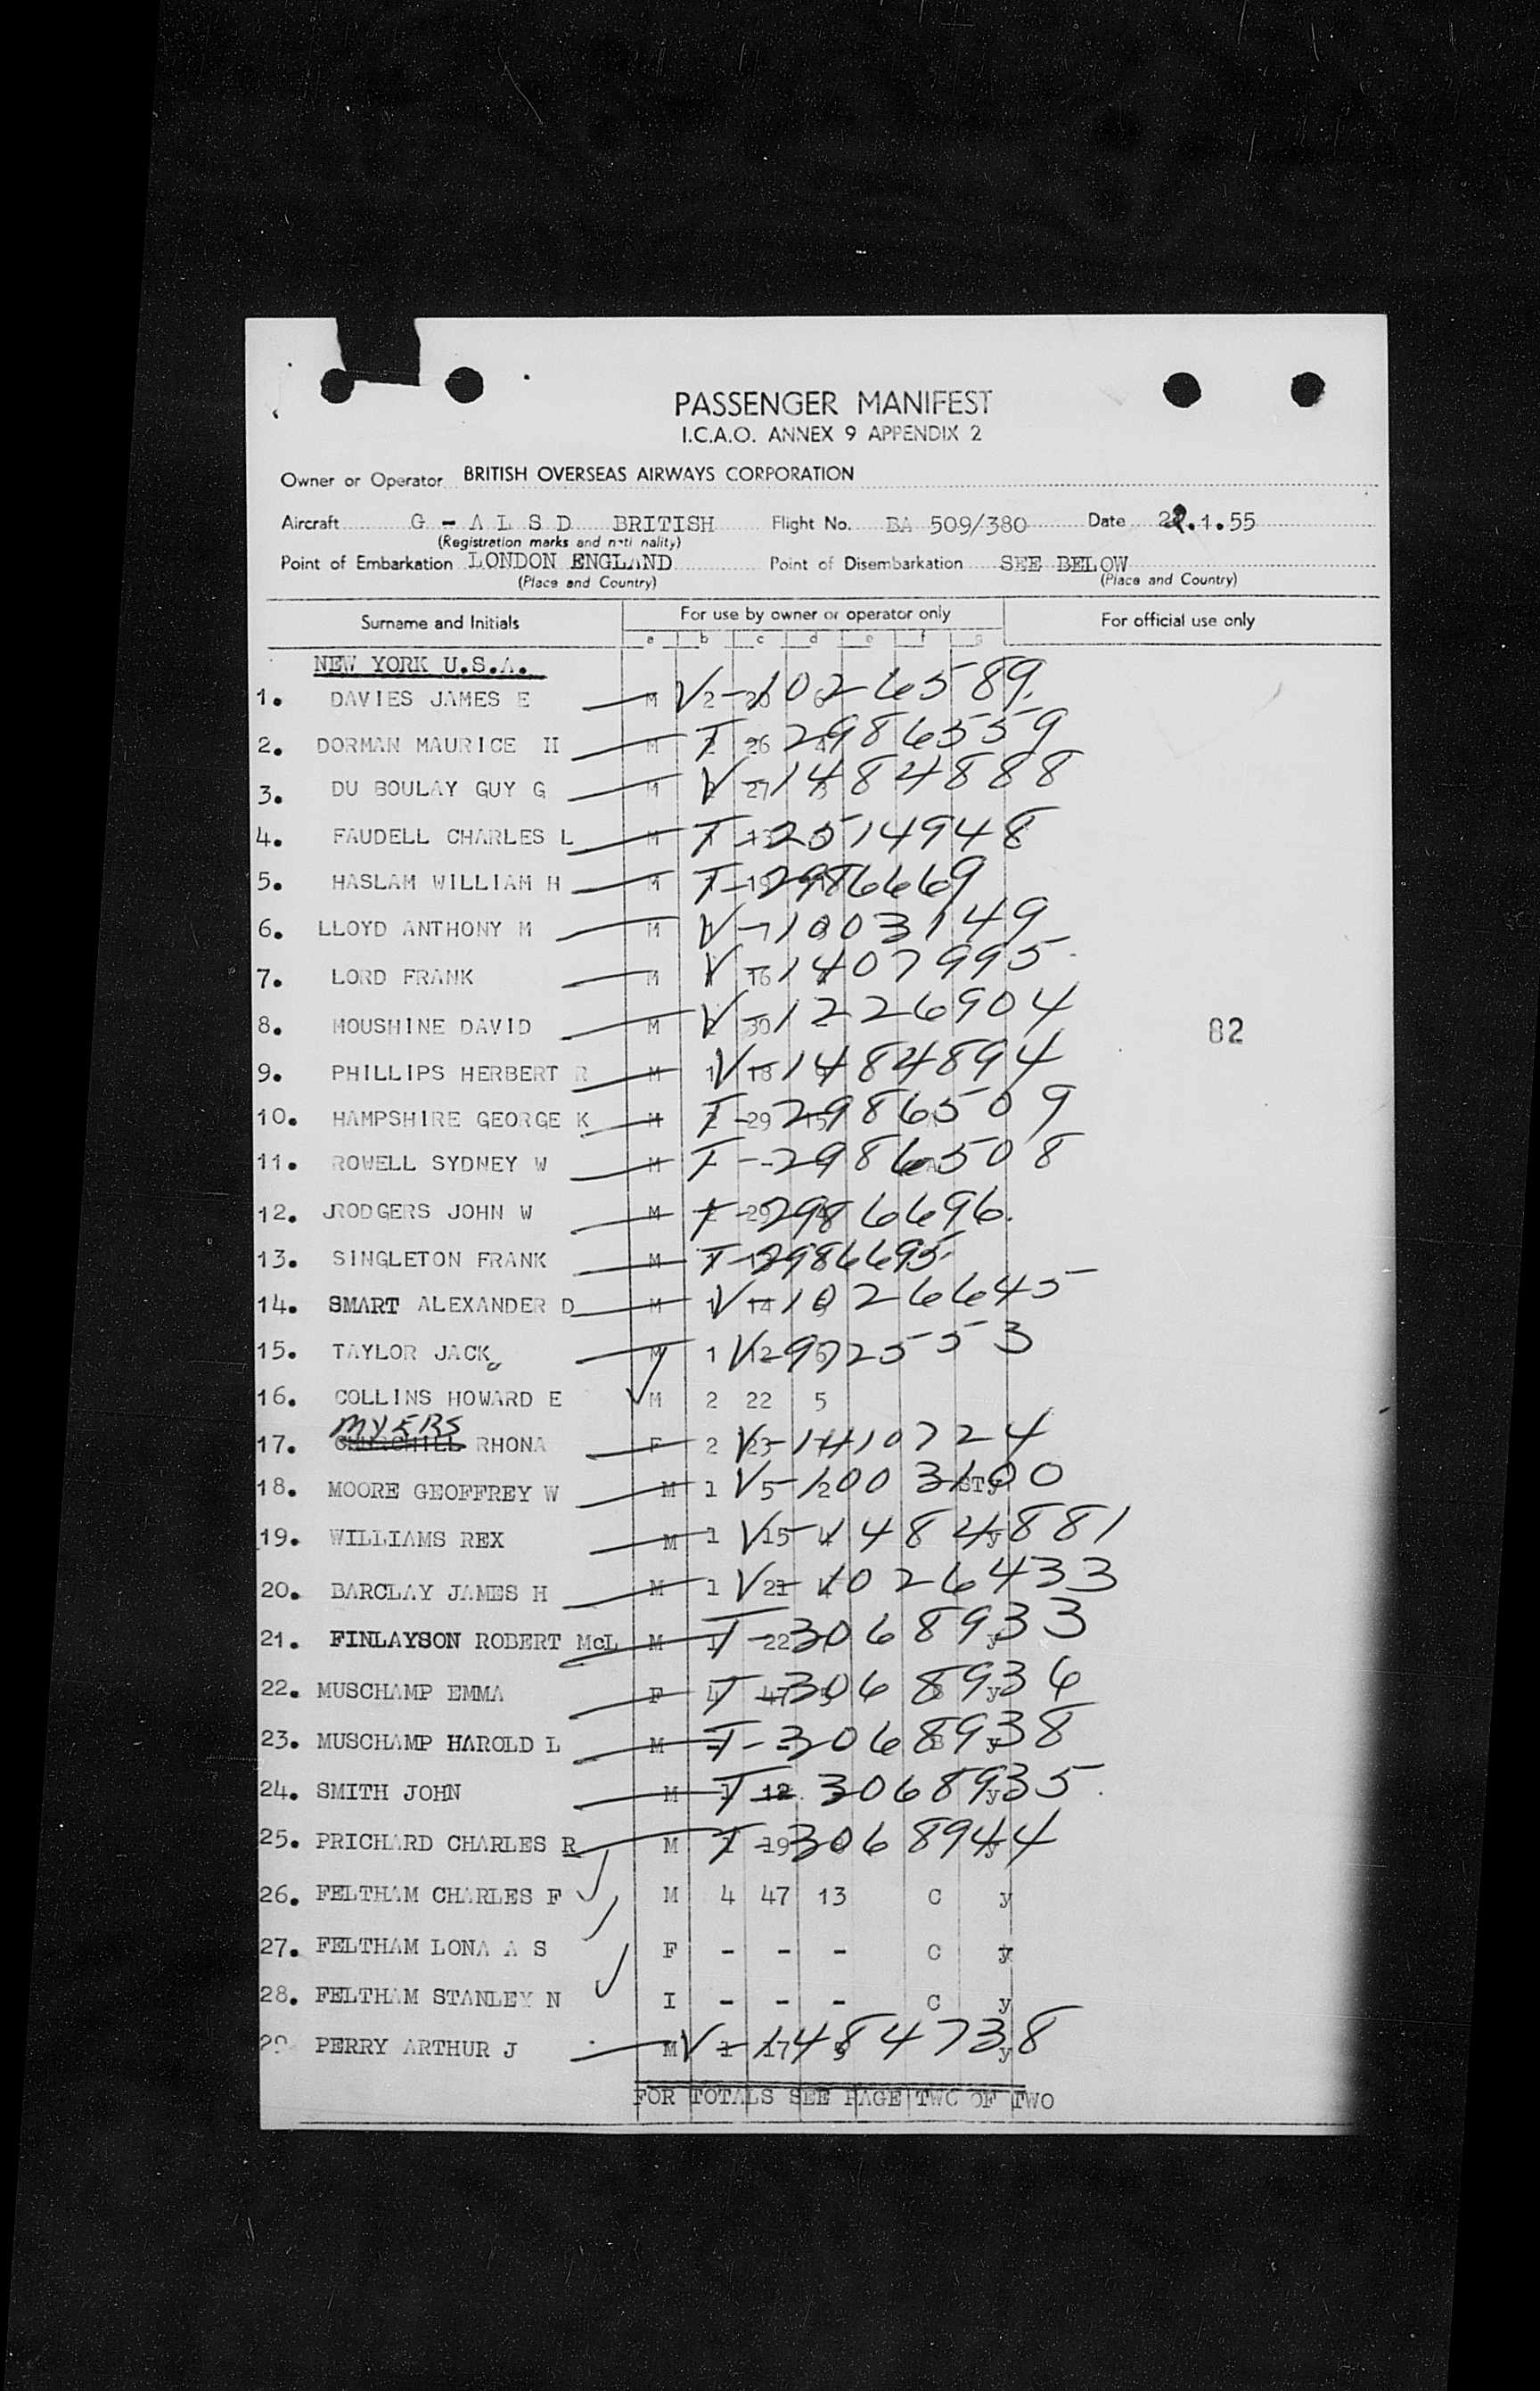 PASSENGER MANIFEST
I.C.A.O. ANNEX 9 APPENDIX 2
Owner or Operator BRITISH OVERSEAS AIRWAYS CORPORATION
Aircraft G - A L S D BRITISH Flight No. BA 509/380 Date .1.55
(Registration marks and nati nality)
Point of Embarkation LONDON ENGLAND Point of Disembarkation SEE BELOW
(Place and Country) (Place and Country)
Surname and Initials For use by owner or operator only For official use only
a b c d e f g
NEW YORK U.S.A.
1. DAVIES JAMES E M V-10246589
2. DORMAN MAURICE H M T-2986559
3. DU BOULAY GUY G M V-1484888
4. FAUDELL CHARLES L M T-2514948
5. HASLAM WILLIAM H M T-2986669
6. LLOYD ANTHONY M M V-1003149
7. LORD FRANK M V-1407995
8. MOUSHINE DAVID M V-1226904
82
9. PHILLIPS HERBERT R M V-1484894
10. HAMPSHIRE GEORGE K M T-2986509
11. ROWELL SYDNEY W M T-2986508
12. RODGERS JOHN W M T-2986696
13. SINGLETON FRANK M T-2986695
14. SMART ALEXANDER D M V-1026645
15. TAYLOR JACK M 1 V-9725553
16. COLLINS HOWARD E M 2 22 5
MYERS
17. CHURCHILL RHONA F 2 V-1410724
18. MOORE GEOFFREY W M 1 V-1003100
19. WILLIAMS REX M 1 V-1484881
20. BARCLAY JAMES H M 1 V-1026433
21. FINLAYSON ROBERT McL M T-3068933
22. MUSCHAMP EMMA F T-3068936
23. MUSCHAMP HAROLD L M T-3068938
24. SMITH JOHN M T-3068935
25. PRICHARD CHARLES R M T-3068944
26. FELTHAM CHARLES F M 4 47 13 C y
27. FELTHAM LONA A S F - - - C y
28. FELTHAM STANLEY N I - - - C y
29 PERRY ARTHUR J M V-1484738
FOR TOTALS SEE PAGE TWO OF TWO